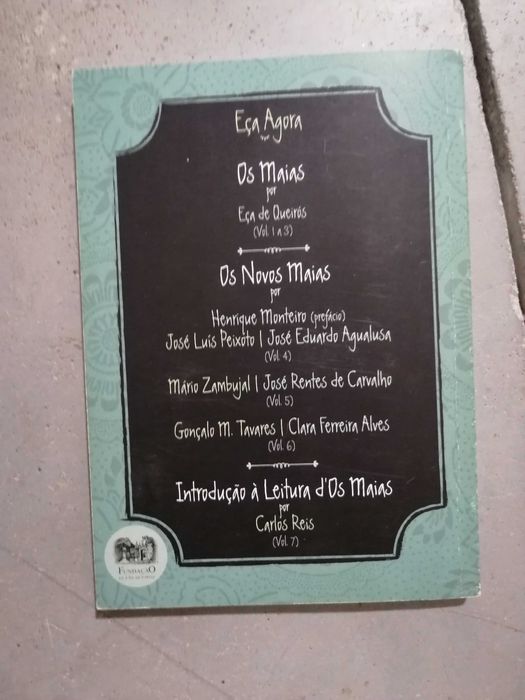 Eça Agora
Os Maias
por
Eça de Queirós
(Vol. 1 a 3)
Os Novos Maias
por
Henrique Monteiro (prefácio)
José Luís Peixoto | José Eduardo Agualusa
(Vol. 4)
Mário Zambujal | José Rentes de Carvalho
(Vol. 5)
Gonçalo M. Tavares | Clara Ferreira Alves
(Vol. 6)
Introdução à Leitura d'Os Maias
por
Carlos Reis
(Vol. 7)
FUNDAÇÃO